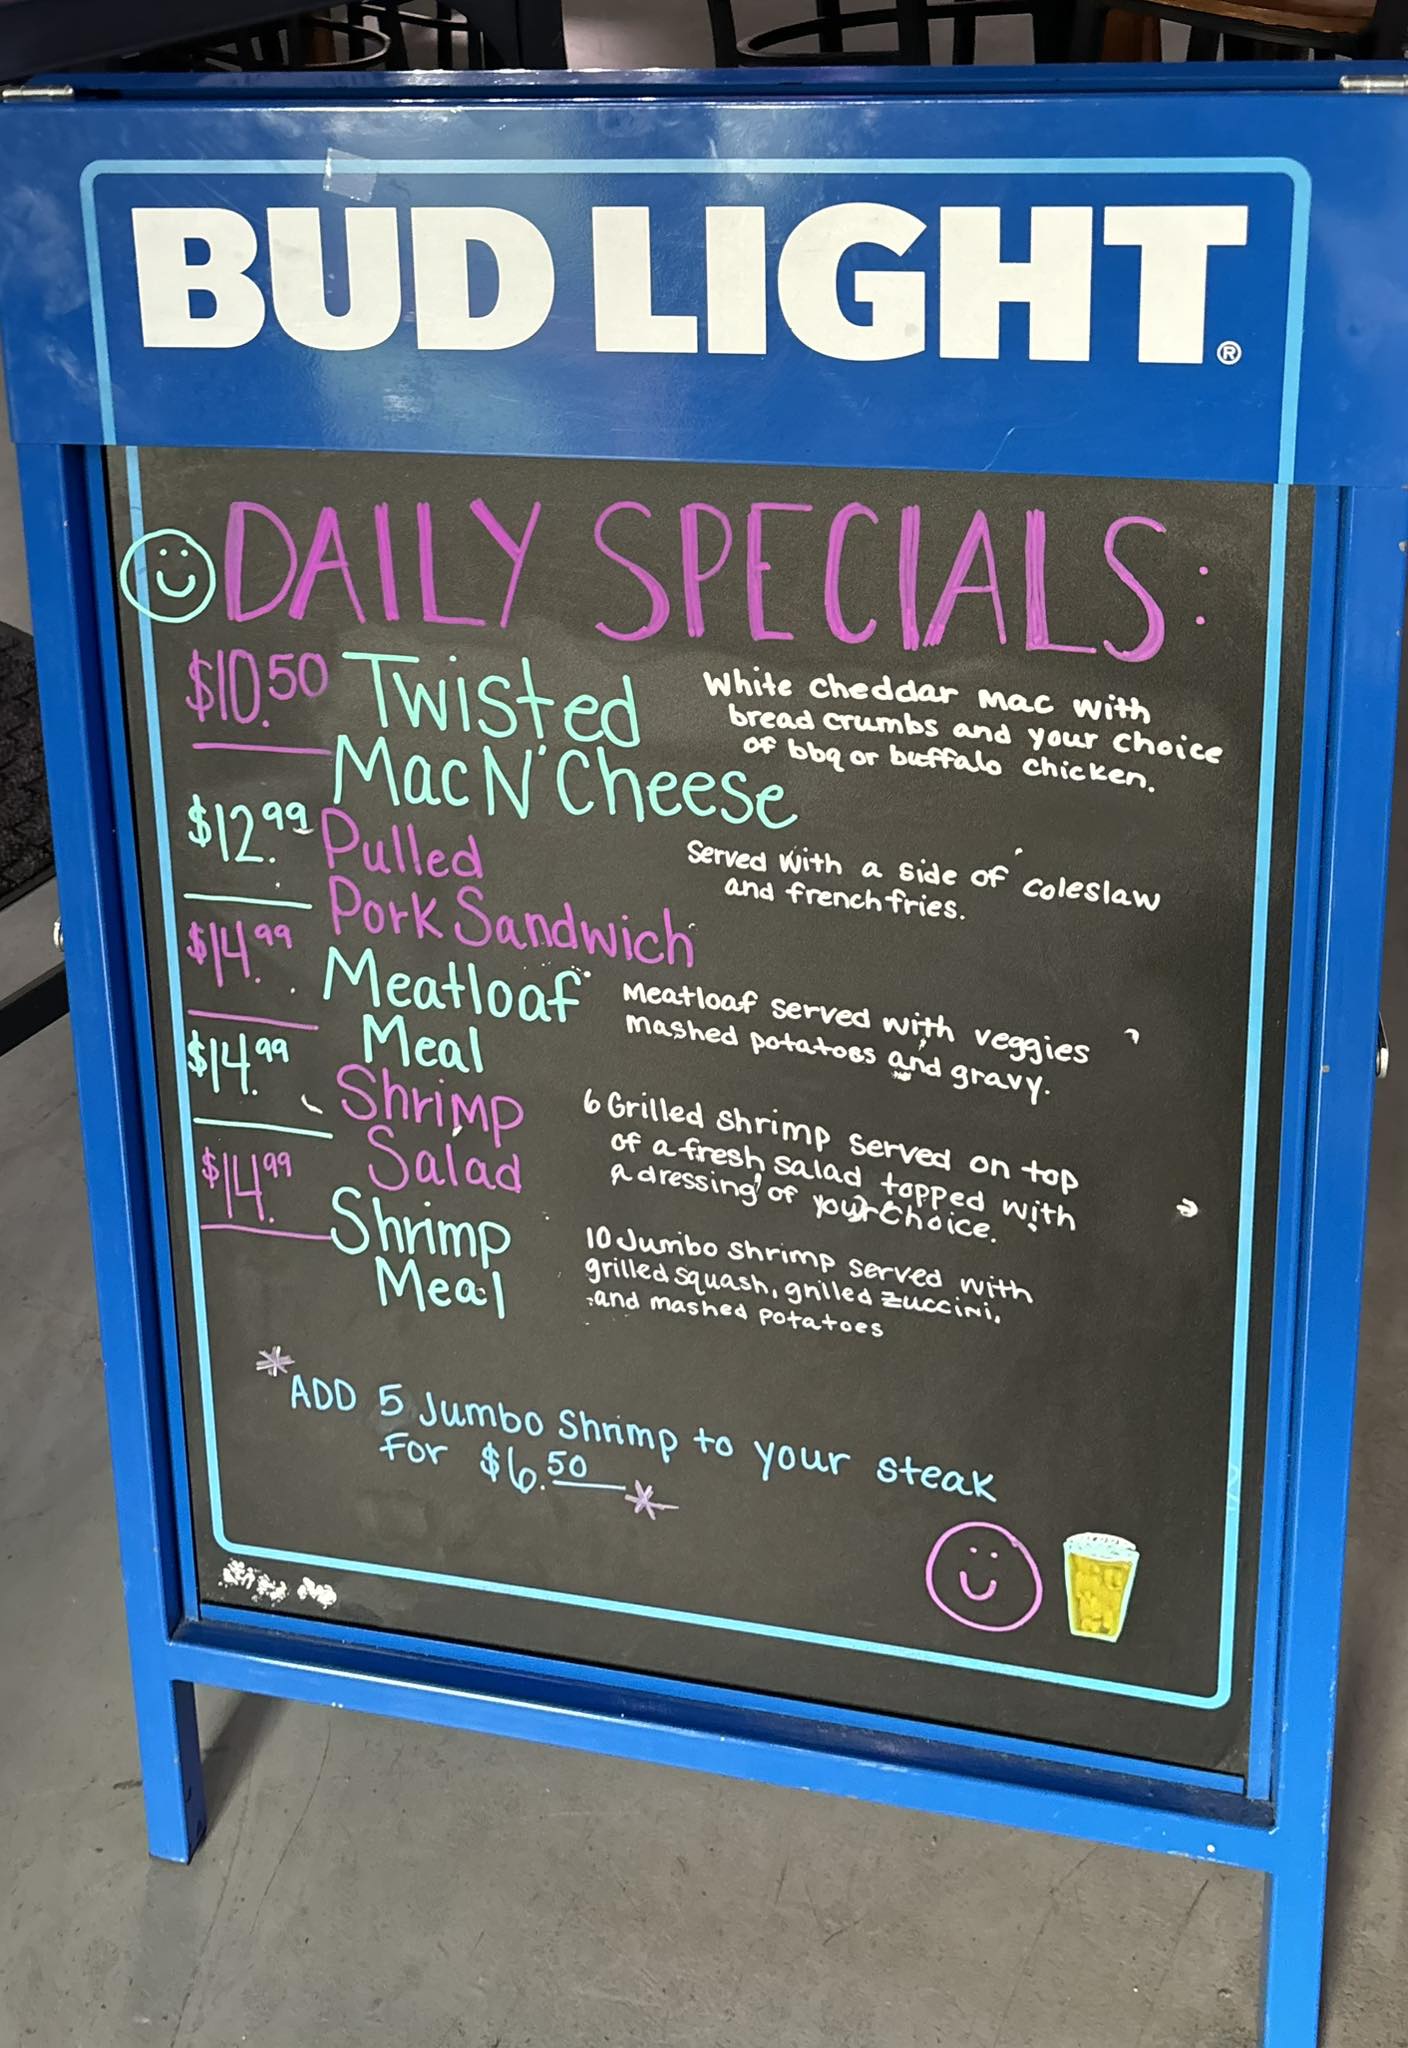 BUD LIGHT®
DAILY SPECIALS:
$10.50 Twisted
Mac N' Cheese
White cheddar mac with
bread crumbs and your choice
of bbq or buffalo chicken.
$12.99 Pulled
Pork Sandwich
Served with a side of coleslaw
and french fries.
$14.99 Meatloaf
Meal
Meatloaf served with veggies
mashed potatoes and gravy.
$14.99 Shrimp
Salad
6 Grilled shrimp served on top
of a fresh salad topped with
a dressing of your choice.
$14.99 Shrimp
Meal
10 Jumbo shrimp served with
grilled squash, grilled zuccini,
and mashed potatoes
*ADD 5 Jumbo Shrimp to your steak
For $6.50*